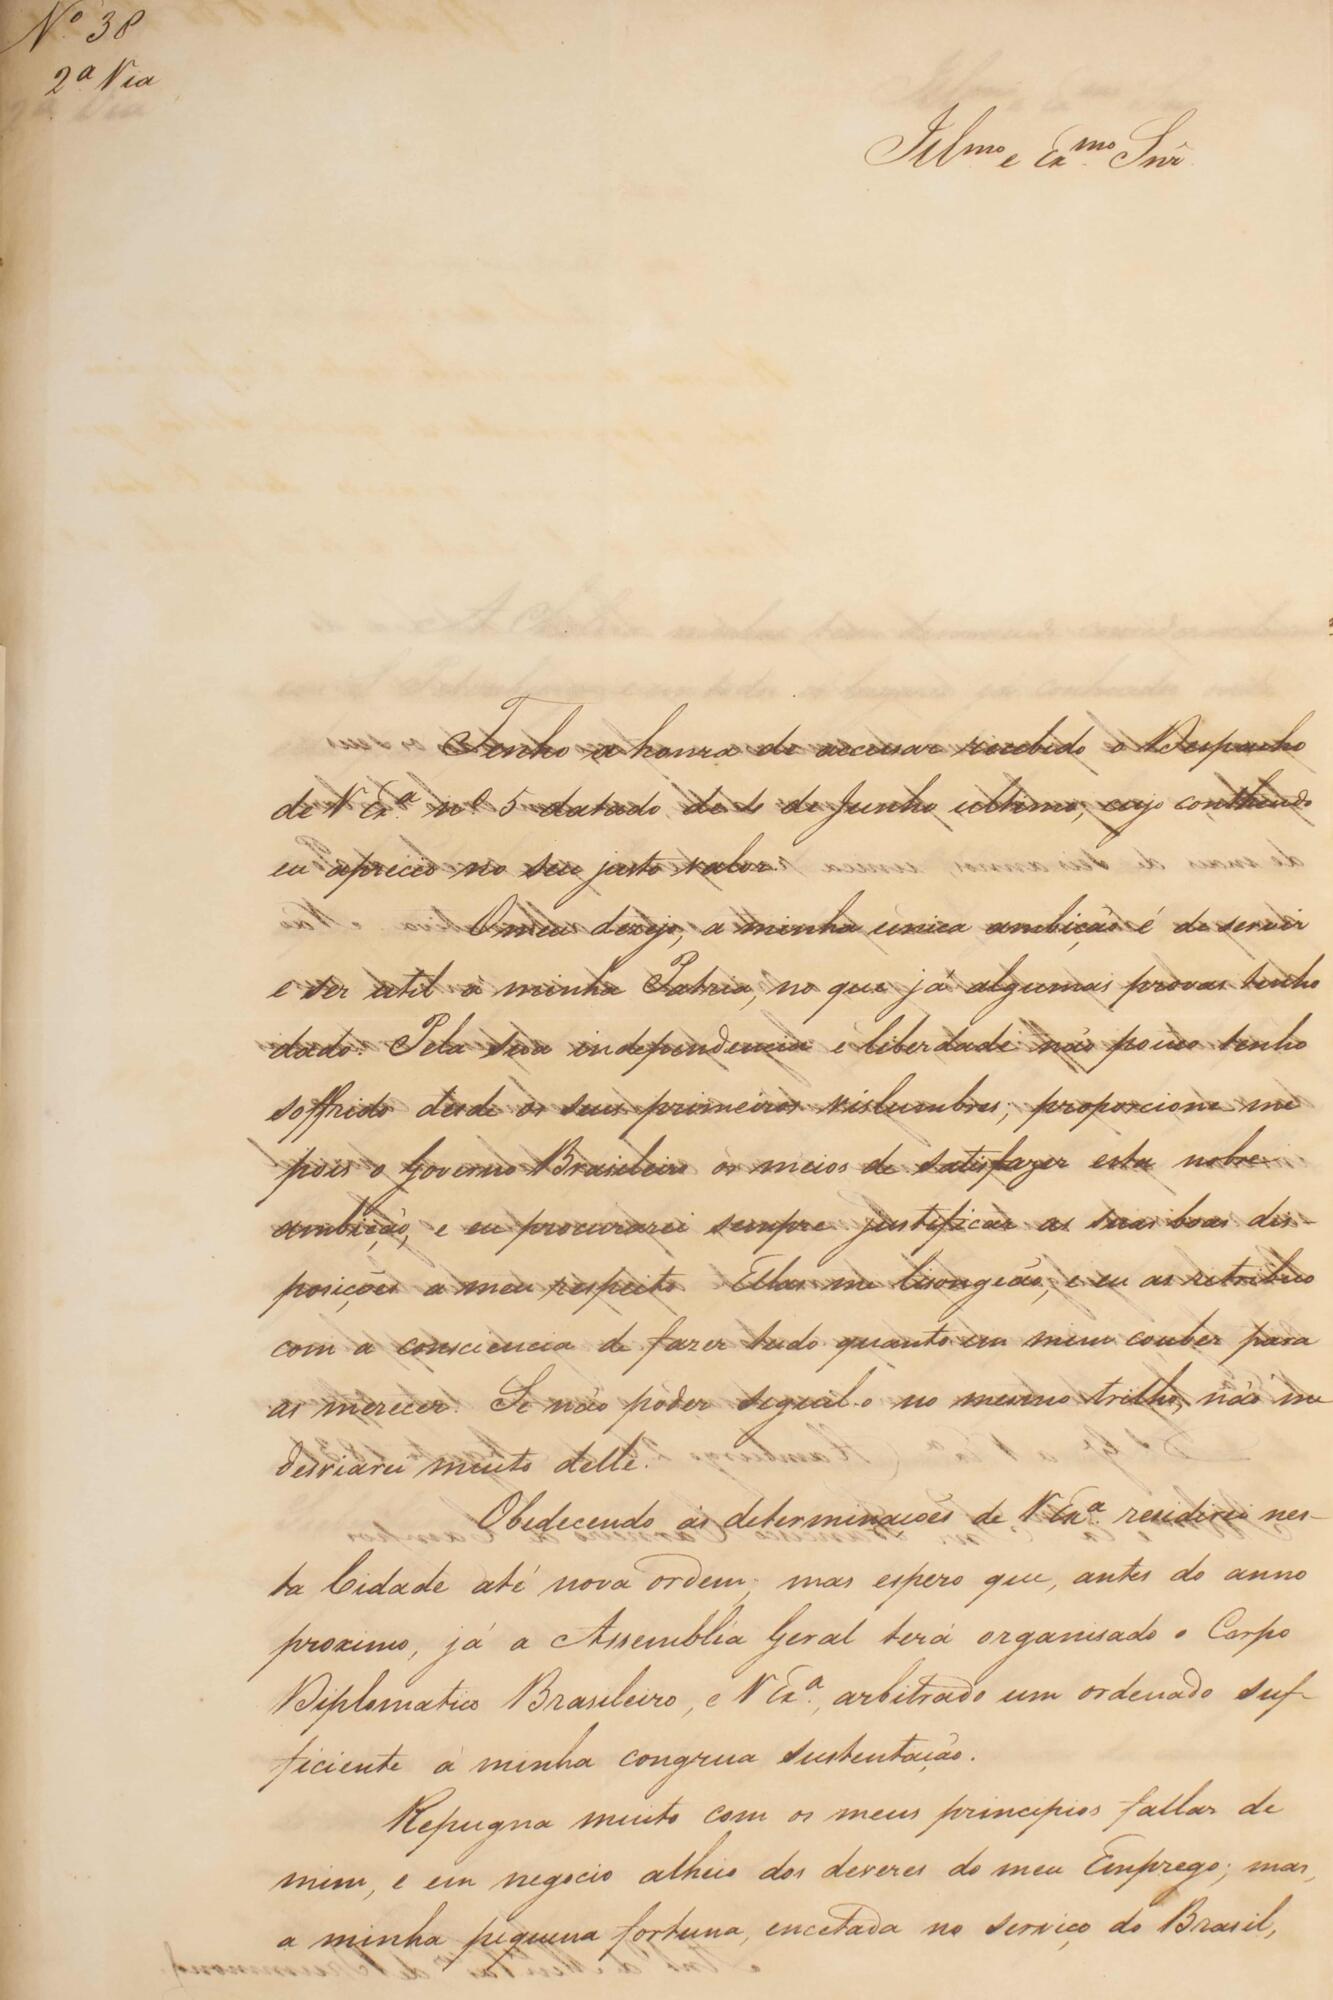 Nº 38
2ª Via
Illmo e Exmo Snr
Tenho a honra de accusar recebido o Despacho
de V Exª nº 5 datado de 4 de Junho ultimo, cujo contheudo
eu aprecio no seu justo valor
O meu dezejo, a minha unica ambição é de servir
e ser util á minha Patria, no que já algumas provas tenho
dado. Pela sua independencia e liberdade não pouco tenho
soffrido desde os seus primeiros vislumbres; proporcione me
pois o Governo Brasileiro os meios de satisfazer esta nobre
ambição, e eu procurarei sempre justificar as suas boas dis-
posições a meu respeito Ellas me lisongeão, e eu as retribuo
com a consciencia de fazer tudo quanto em mim couber para
as merecer. Se não poder seguil-o no mesmo trilho, não me
desviarei muito delle.
Obedecendo ás determinações de V Exª residirei nes-
ta Cidade até nova ordem; mas espero que, antes do anno
proximo, já a Assemblia Geral terá organisado o Corpo
Diplomatico Brasileiro, e V Exª, arbitrado um ordenado suf-
ficiente á minha congrua sustentação.
Repugna muito com os meus principios fallar de
mim, e em negocio alheio dos deveres do meu Emprego; mas,
a minha pequena fortuna, encetada no serviço do Brasil,